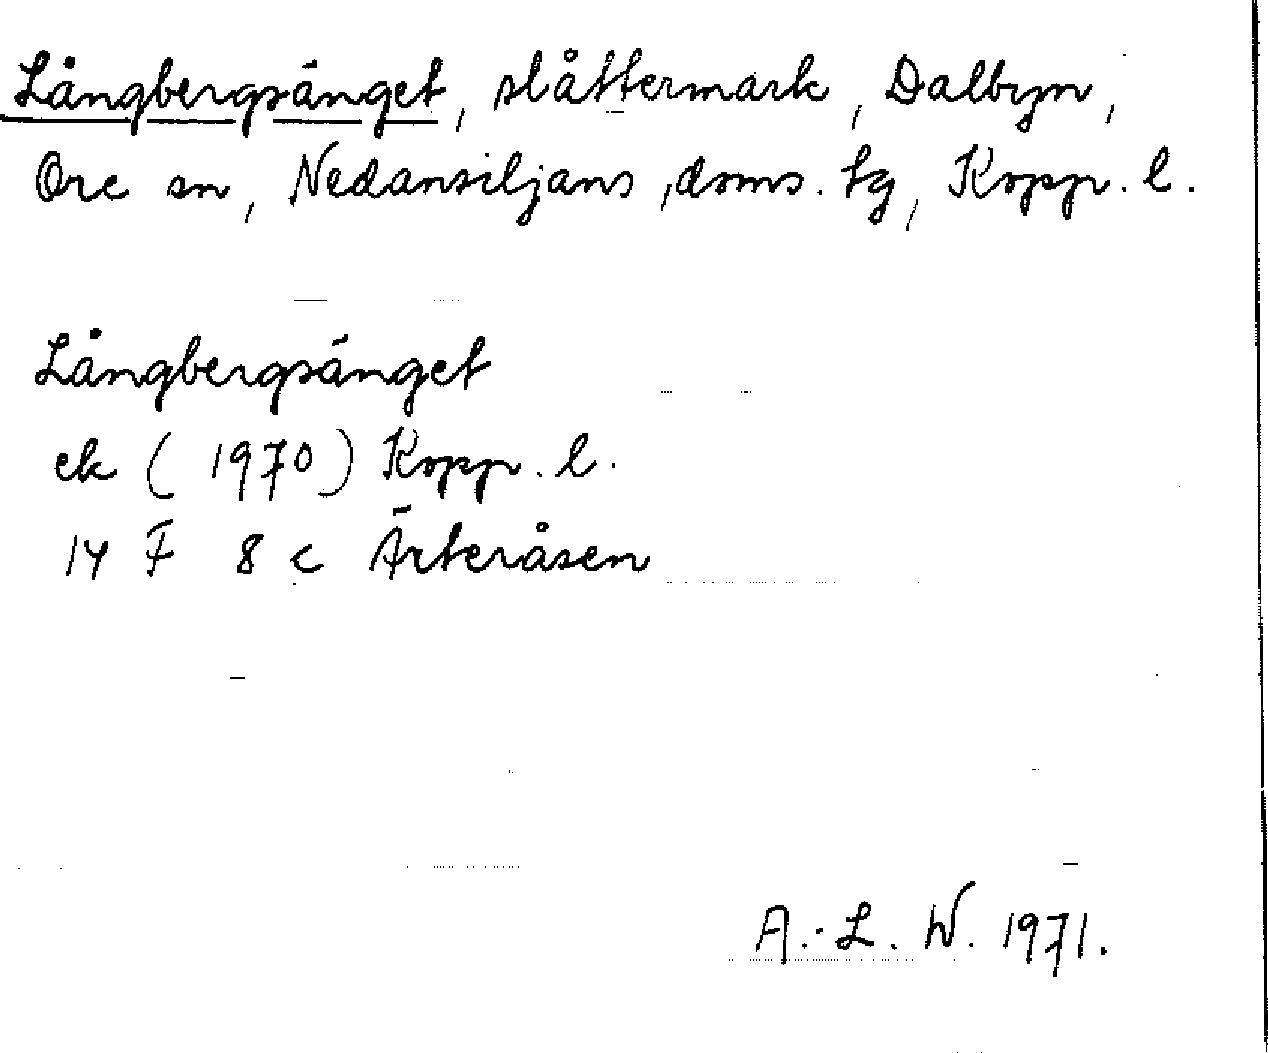 Långbergsänget, slåttermark, Dalbyn,
Ore sn, Nedansiljans, doms. tg, Kopp. l.
Långbergsänget
ek (1970) Kopp. l.
14 F 8 c Ärteråsen
A.-L. W. 1971.